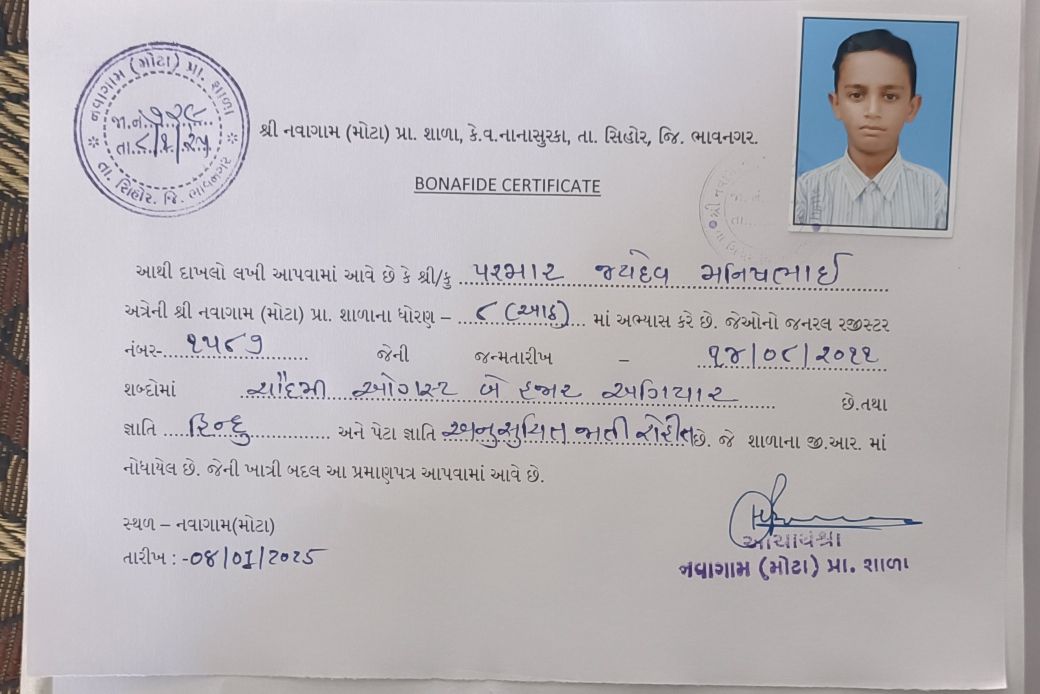 નવાગામ (મોટા) પ્રા. શાળા
જા.નં.
તા. ૮/૧/૨૫
તા. સિહોર. જિ. ભાવનગર
શ્રી નવાગામ (મોટા) પ્રા. શાળા, કે.વ.નાનાસુરકા, તા. સિહોર, જિ. ભાવનગર.
BONAFIDE CERTIFICATE
આથી દાખલો લખી આપવામાં આવે છે કે શ્રી/કુ પરમાર જયદેવ મનિષભાઈ
અત્રેની શ્રી નવાગામ (મોટા) પ્રા. શાળાના ધોરણ – ૮ (આઠ) માં અભ્યાસ કરે છે. જેઓનો જનરલ રજીસ્ટર
નંબર- ૧૫૮૭ જેની જન્મતારીખ – ૧૪/૦૮/૨૦૧૧
શબ્દોમાં ચૌદમી ઓગસ્ટ બે હજાર અગિયાર છે.તથા
જ્ઞાતિ હિન્દુ અને પેટા જ્ઞાતિ અનુસુચિત જાતી રોહીત છે. જે શાળાના જી.આર. માં
નોંધાયેલ છે. જેની ખાત્રી બદલ આ પ્રમાણપત્ર આપવામાં આવે છે.
સ્થળ – નવાગામ(મોટા)
તારીખ : -08/01/2025
આચાર્યશ્રી
નવાગામ (મોટા) પ્રા. શાળા